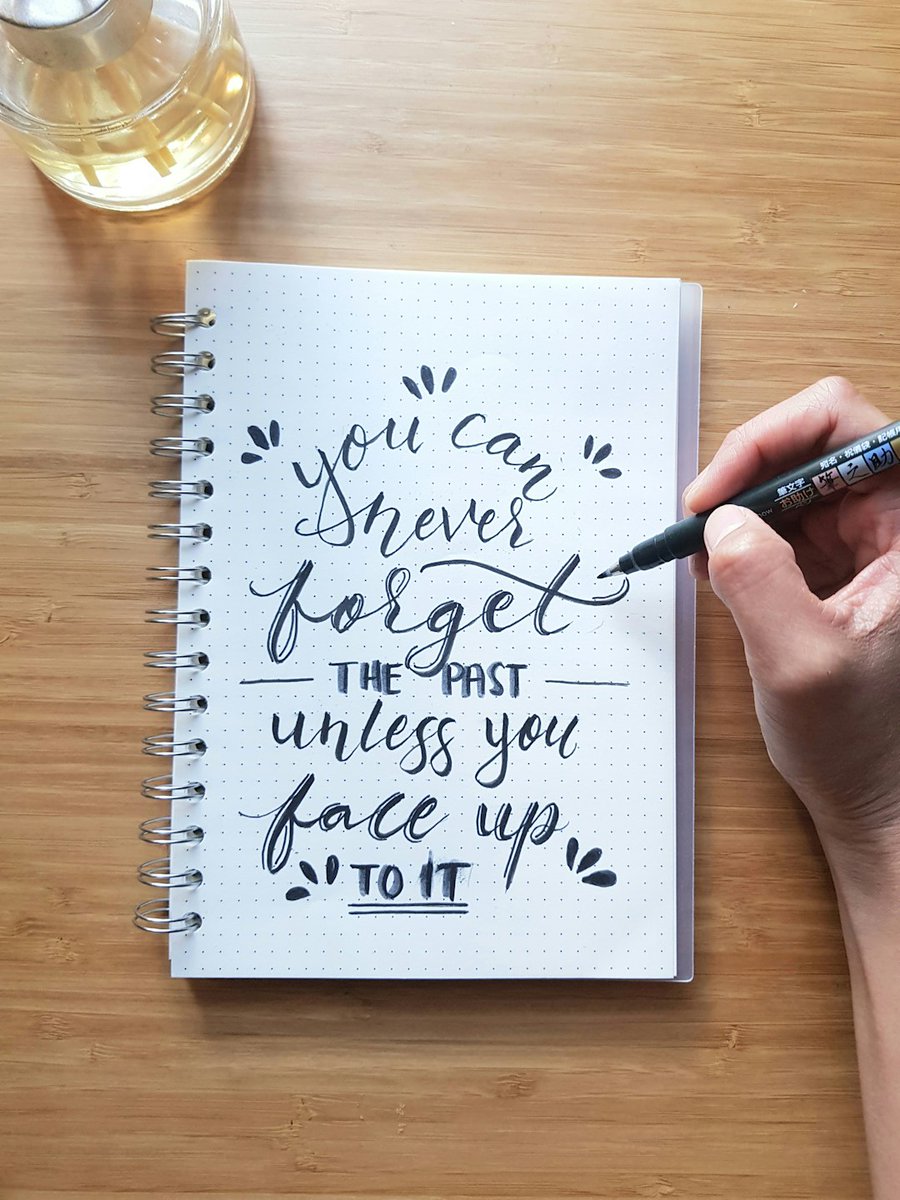 you can
never
forget
THE PAST
unless you
face up
TO IT
筆文字
お助け
筆之助